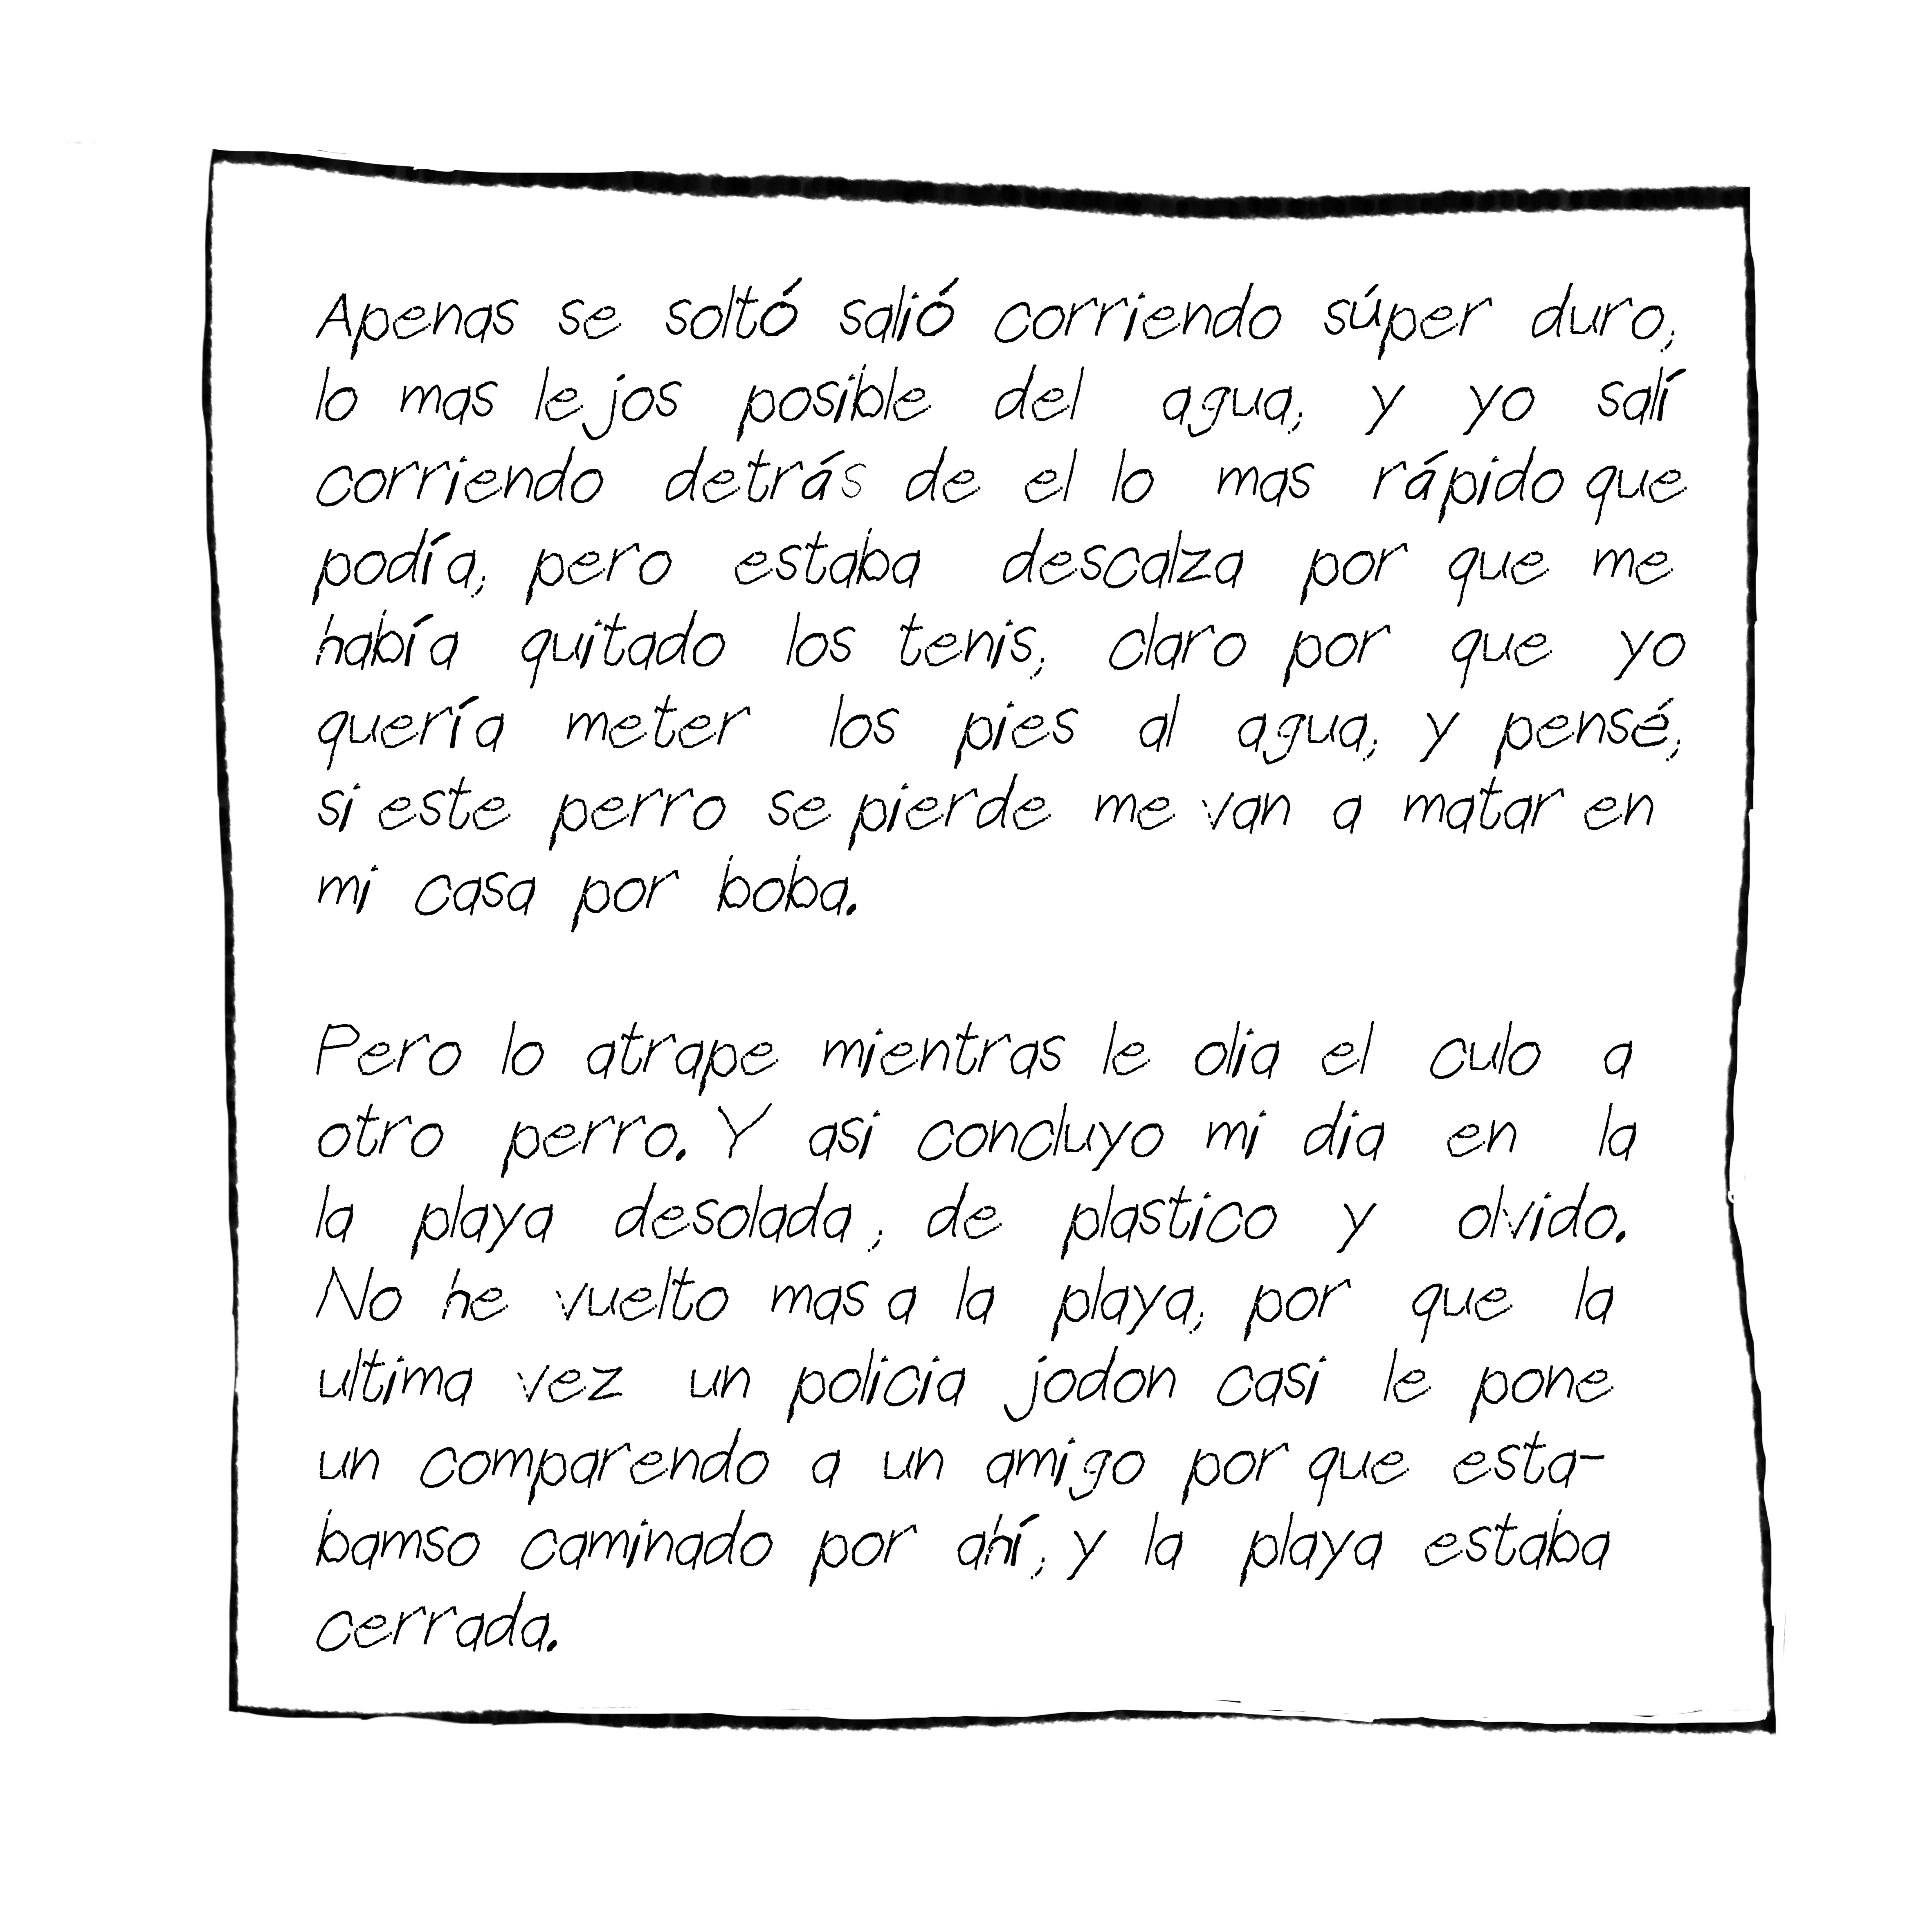 Apenas se soltó salió corriendo súper duro,
lo mas lejos posible del agua, y yo salí
corriendo detrás de el lo mas rápido que
podía, pero estaba descalza por que me
había quitado los tenis, claro por que yo
quería meter los pies al agua, y pensé,
si este perro se pierde me van a matar en
mi casa por boba.
Pero lo atrape mientras le olia el culo a
otro perro. Y asi concluyo mi dia en la
la playa desolada, de plastico y olvido.
No he vuelto mas a la playa, por que la
ultima vez un policia jodon casi le pone
un comparendo a un amigo por que esta-
bamso caminado por ahí, y la playa estaba
cerrada.